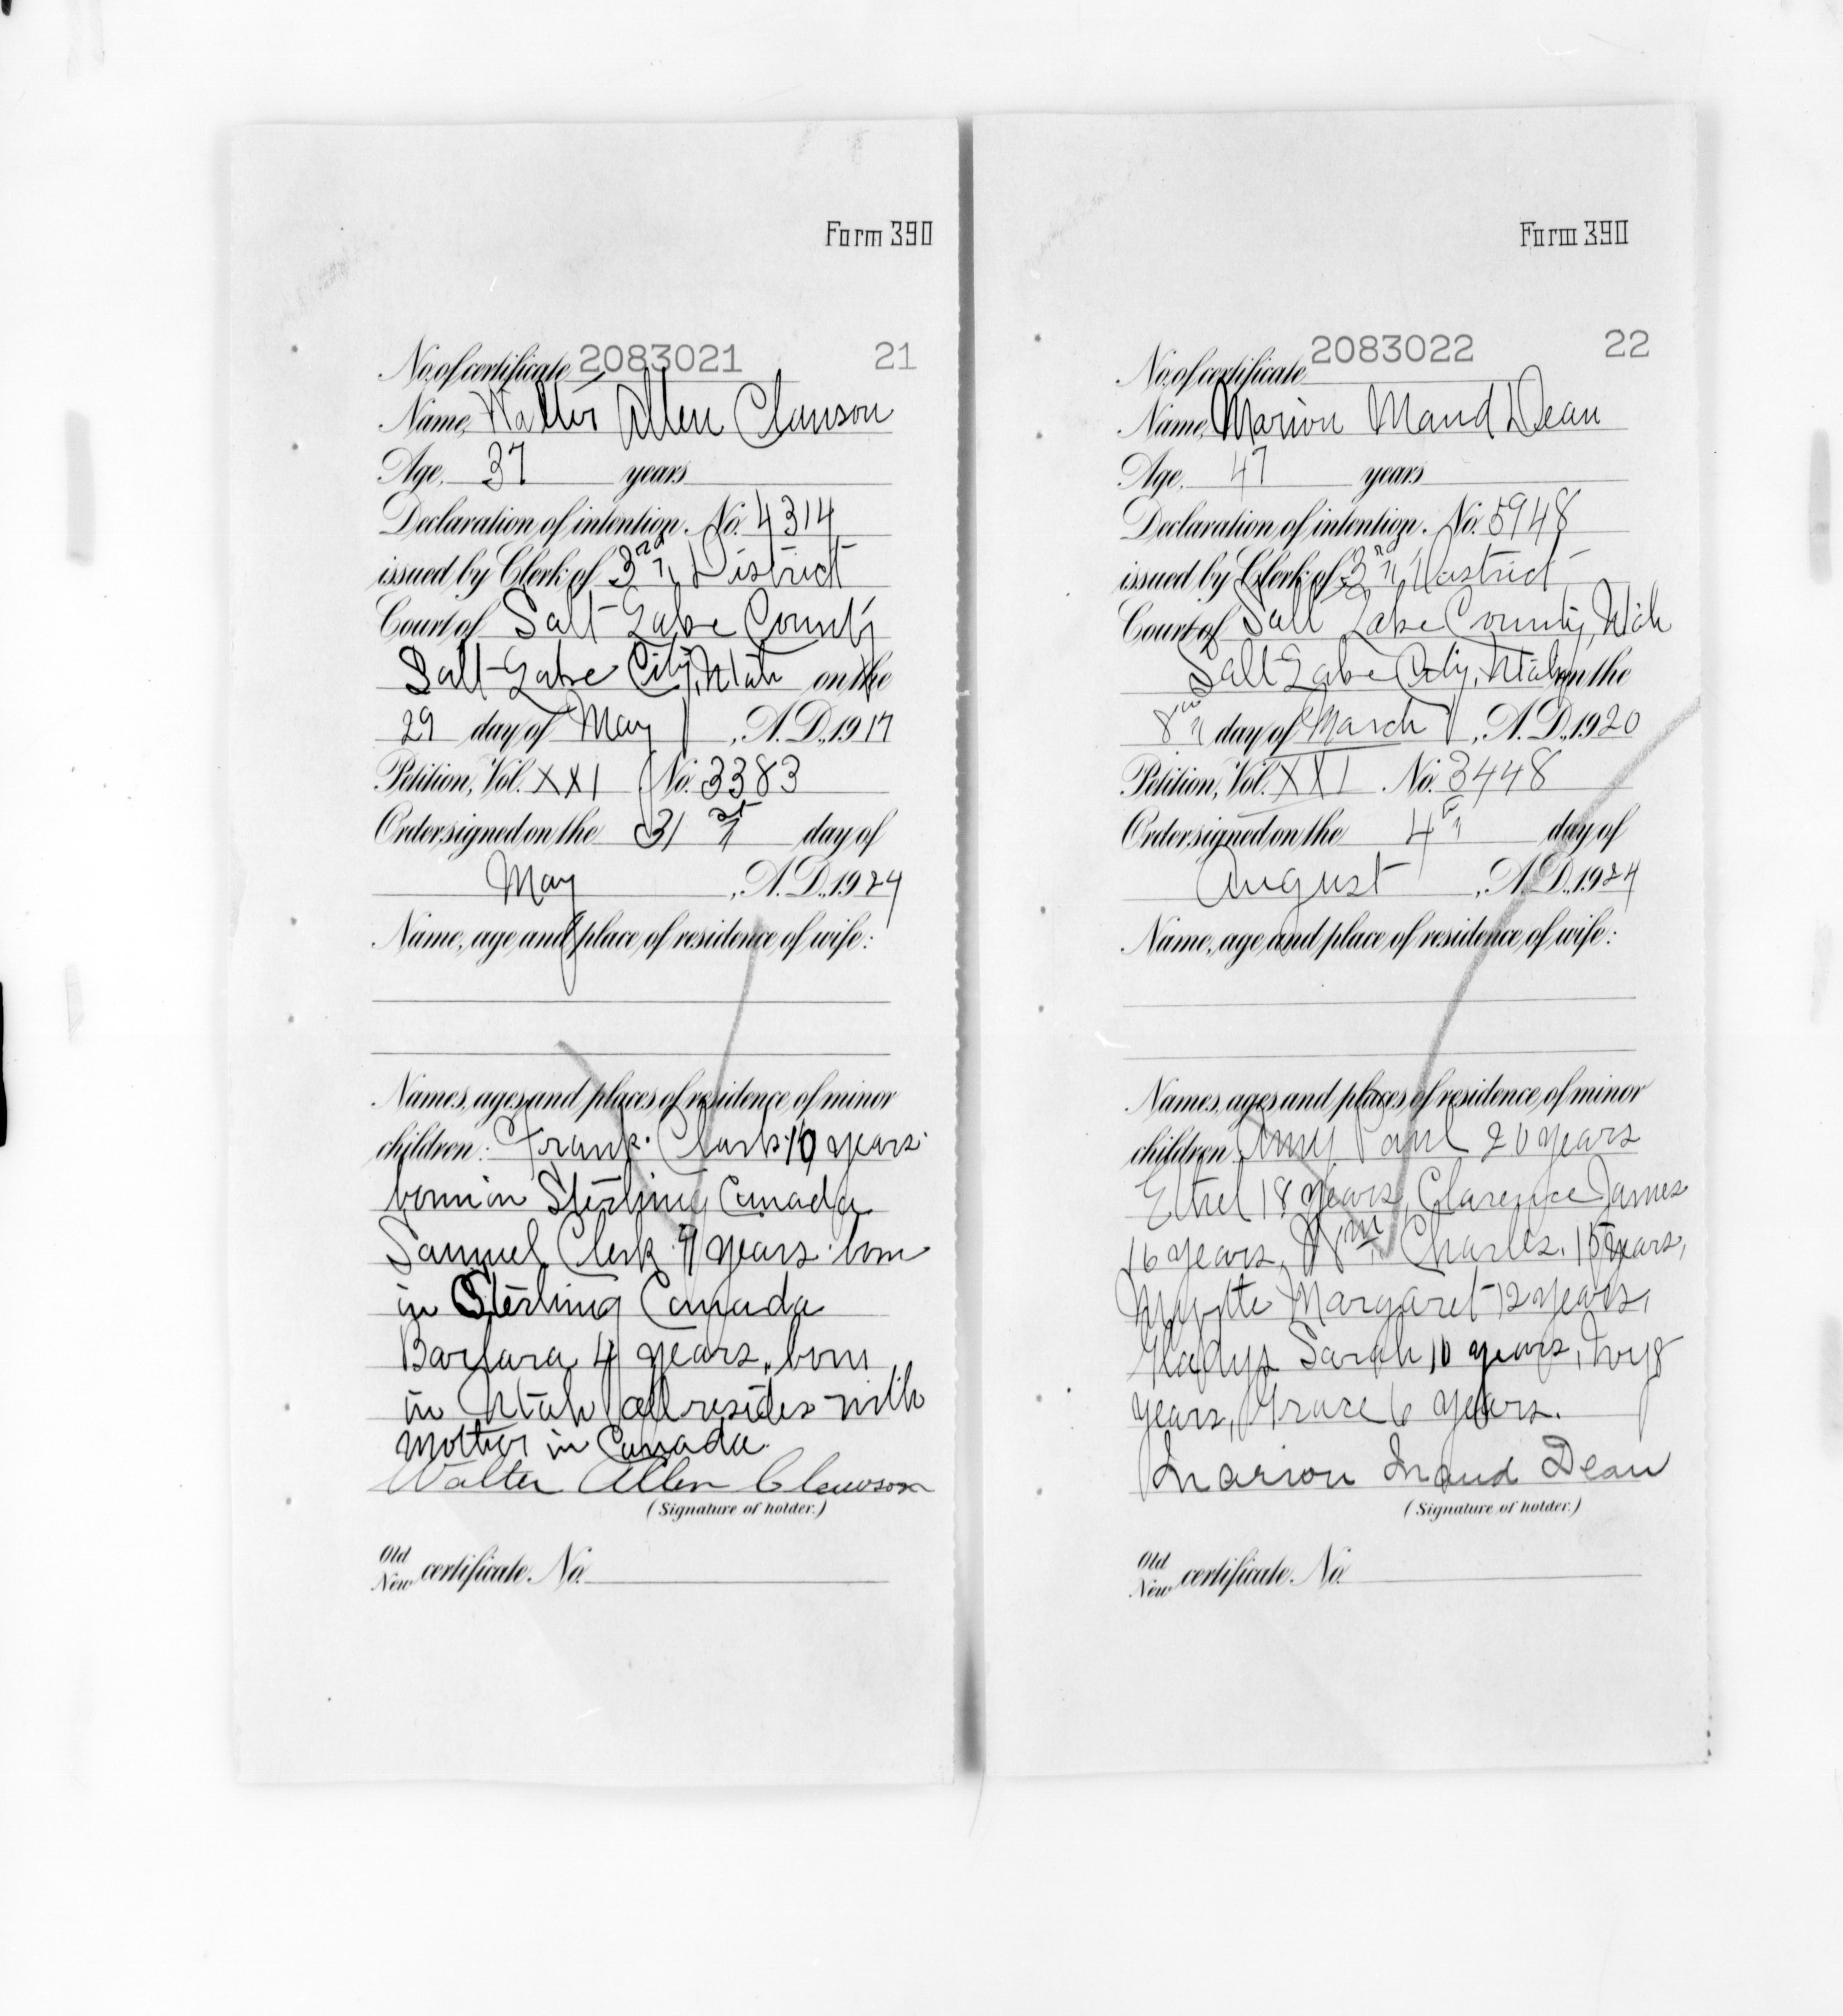 Form 390
No. of certificate 2083021 21
Name, Walter Allen Clawson
Age, 37 years
Declaration of intention, No. 4314
issued by Clerk of 3rd District
Court of Salt Lake County
Salt Lake City, Utah on the
29 day of May, A.D., 1917
Petition, Vol. XXI No. 3383
Order signed on the 31st day of
May, A.D., 1924
Name, age and place of residence of wife:
Names, ages and places of residence of minor
children: Frank Clark 10 years
born in Sterling Canada
Samuel Clark 9 years born
in Sterling Canada
Barbara 4 years, born
in Utah all resides with
mother in Canada.
Walter Allen Clawson
(Signature of holder.)
Old
New certificate No.
Form 390
No. of certificate 2083022 22
Name, Marion Maud Dean
Age, 47 years
Declaration of intention, No. 5948
issued by Clerk of 3rd District
Court of Salt Lake County, Utah
Salt Lake City, Utah on the
8th day of March, A.D., 1920
Petition, Vol. XXI No. 3448
Order signed on the 4th day of
August, A.D., 1924
Name, age and place of residence of wife:
Names, ages and places of residence of minor
children: Amy Paul 20 years
Ethel 18 years, Clarence James
16 years, Wm. Charles. 15 years,
Margaret 12 years,
Gladys Sarah 10 years, Ivy 8
years, Grace 6 years.
Marion Maud Dean
(Signature of holder.)
Old
New certificate No.